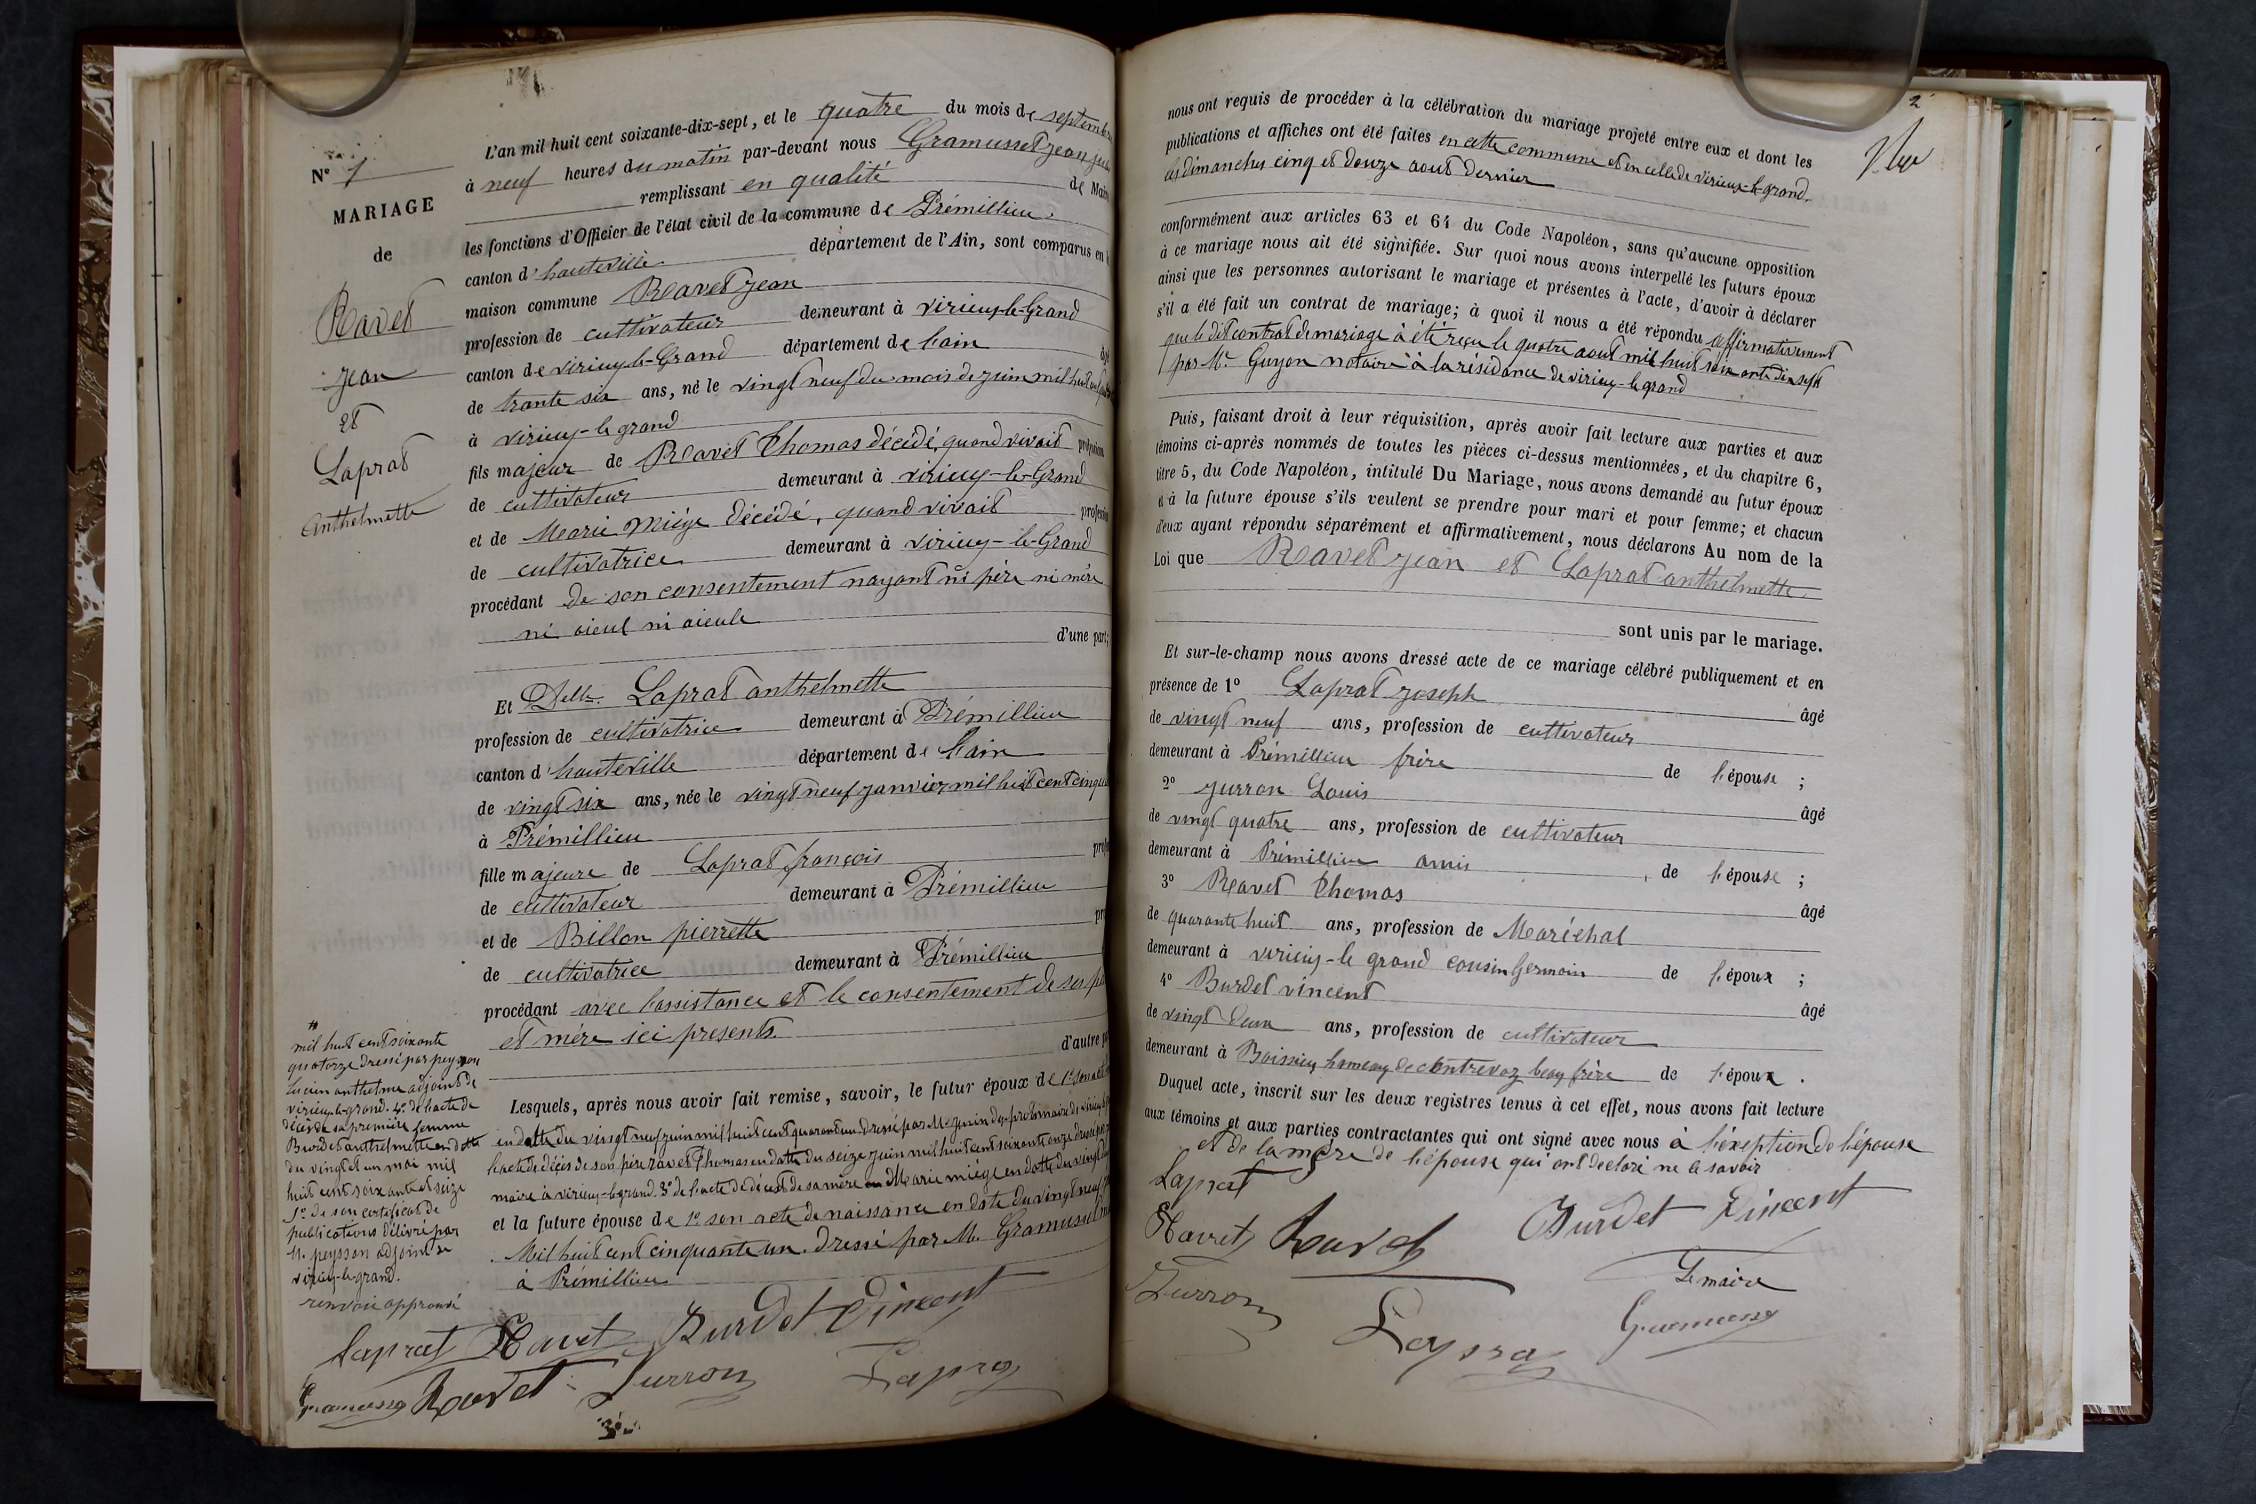 N° 1
MARIAGE
de
Ravet
jean
et
Laprat
Anthelmette
L'an mil huit cent soixante-dix-sept, et le quatre du mois de septembre
à neuf heures du matin par-devant nous Gramusset jean
remplissant en qualité de Maire
les fonctions d'Officier de l'état civil de la commune de Prémillieu
canton d'hauteville département de l'Ain, sont comparus en
maison commune Ravet jean
profession de cultivateur demeurant à virieu-le-Grand
canton de virieu-le-Grand département de l'ain
de trante six ans, né le vingt neuf du mois de juin mil huit cent
à virieu-le grand
fils majeur de Ravet Thomas décédé, quand vivait profession
de cultivateur demeurant à virieu-le-Grand
et de Marie Miége décédé, quand vivait profession
de cultivatrice demeurant à virieu-le-Grand
procédant de son consentement nayant ni père ni mère
ni aieul ni aieule
d'une part;
Et Delle Laprat anthelmette
profession de cultivatrice demeurant à Prémillieu
canton d'hauteville département de l'ain
de vingt six ans, née le vingt neuf janvier mil huit cent
à Prémillieu
fille majeure de Laprat françois
de cultivateur demeurant à Prémillieu
et de Billon pierrette
de cultivatrice demeurant à Prémillieu
procédant avec l'assistance et le consentement de ses
et mère ici presents.
d'autre
Lesquels, après nous avoir fait remise, savoir, le futur époux de 1° son
en datte du vingt neuf juin mil huit cent quarante un dressé par
l'acte de décès de son père ravet Thomas en datte du seize juin mil huit cent soixante onze dressé
maire à virieu-le grand. 3° de l'acte de décès de sa mère Marie miége en datte du vingt
et la future épouse de 1° son acte de naissance en date du vingt neuf
Mil huit cent cinquante un. dressé par M. Gramusset
à Prémillieu
mil huit cent soixante
quatorze dressé par peysson
lucien anthelme adjoint de
virieu-le-grand. 4° de l'acte de
décès de sa première femme
Burdet anthelmette en datte
du vingt et un mai mil
huit cent soixante et seize
5° de son certificat de
publications délivré par
M. peysson adjoint de
virieu-le-grand.
renvoie approuvé
Laprat Ravet Burdet Vincent
Ravet Jurron
2
nous ont requis de procéder à la célébration du mariage projeté entre eux et dont les
publications et affiches ont été faites en cette commune et en celle de virieu-le-grand.
les dimanches cinq et douze aout dernier
conformément aux articles 63 et 64 du Code Napoléon, sans qu'aucune opposition
à ce mariage nous ait été signifiée. Sur quoi nous avons interpellé les futurs époux
ainsi que les personnes autorisant le mariage et présentes à l'acte, d'avoir à déclarer
s'il a été fait un contrat de mariage; à quoi il nous a été répondu affirmativement
que le dit contrat de mariage à été reçu le quatre aout mil huit soixante dix sept
par Me Guyon notaire à la résidance de virieu-le grand
Puis, faisant droit à leur réquisition, après avoir fait lecture aux parties et aux
témoins ci-après nommés de toutes les pièces ci-dessus mentionnées, et du chapitre 6,
titre 5, du Code Napoléon, intitulé Du Mariage, nous avons demandé au futur époux
et à la future épouse s'ils veulent se prendre pour mari et pour femme; et chacun
d'eux ayant répondu séparément et affirmativement, nous déclarons Au nom de la
Loi que Ravet jean et Laprat anthelmette
sont unis par le mariage.
Et sur-le-champ nous avons dressé acte de ce mariage célébré publiquement et en
présence de 1° Laprat joseph âgé
de vingt neuf ans, profession de cultivateur
demeurant à Prémillieu frère de l'épouse ;
2° jurron Louis âgé
de vingt quatre ans, profession de cultivateur
demeurant à Prémillieu ami de l'épouse ;
3° Ravet Thomas âgé
de quarante huit ans, profession de Maréchal
demeurant à virieu-le grand cousin Germain de l'époux ;
4° Burdet vincent âgé
de vingt deux ans, profession de cultivateur
demeurant à Boissieu hameau de contrevoz beau frère de l'époux .
Duquel acte, inscrit sur les deux registres tenus à cet effet, nous avons fait lecture
aux témoins et aux parties contractantes qui ont signé avec nous à l'éxeption de l'épouse
et de la mére de l'épouse qui ont declaré ne le savoir
Laprat
Ravet Ravet Burdet Vincent
Jurron Le maire